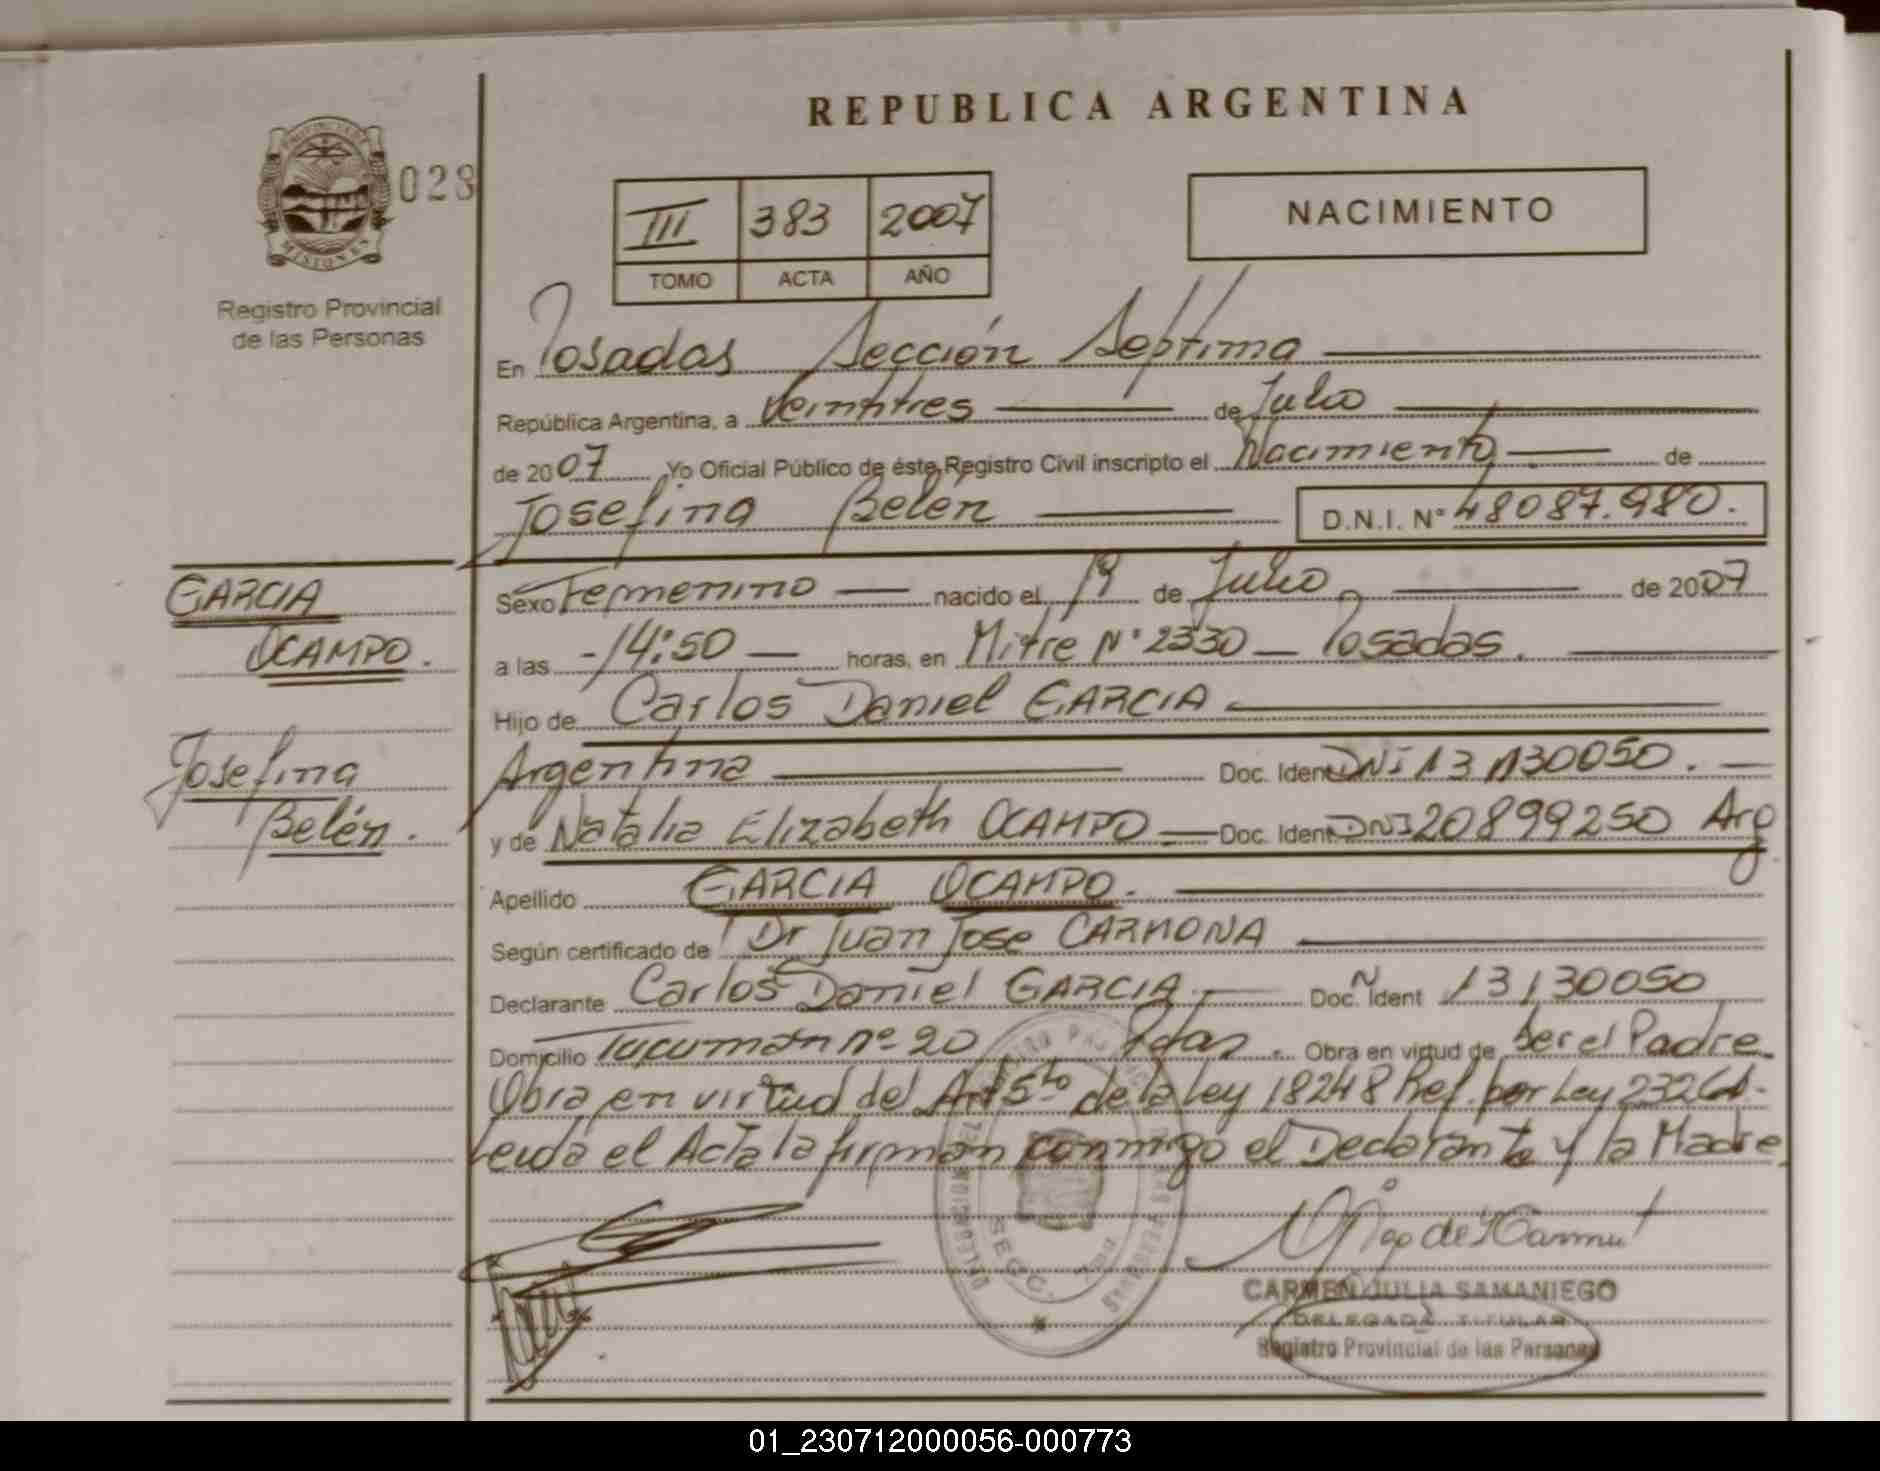 REPUBLICA ARGENTINA
PROVINCIA DE
MISIONES
028
Registro Provincial
de las Personas
III 383 2007
TOMO ACTA AÑO
NACIMIENTO
En Posadas Sección Septima
República Argentina, a Veintitres de Julio
de 2007 Yo Oficial Público de éste Registro Civil inscripto el Nacimiento de
Josefina Belen D.N.I. N° 48087.980.
GARCIA
OCAMPO.
Josefina
Belén.
Sexo Femenino nacido el 19 de Julio de 2007
a las -14:50 horas, en Mitre N° 2330 - Posadas.
Hijo de Carlos Daniel GARCIA
Argentina Doc. Ident DNI 13130050.
y de Natalia Elizabeth OCAMPO Doc. Ident DNI 20899250 Arg
Apellido GARCIA OCAMPO.
Según certificado de Dr Juan Jose CARMONA
Declarante Carlos Daniel GARCIA Doc. Ident 13130050
Domicilio Tucuman nº 20 Pdas. Obra en virtud de ser el Padre.
Obra en virtud del Art 5to de la ley 18248 Ref. por Ley 23264.
Leida el Acta la firman conmigo el Declarante y la Madre.
SECC. 7ma
CARMEN JULIA SAMANIEGO
DELEGADA TITULAR
Registro Provincial de las Personas
01_230712000056-000773